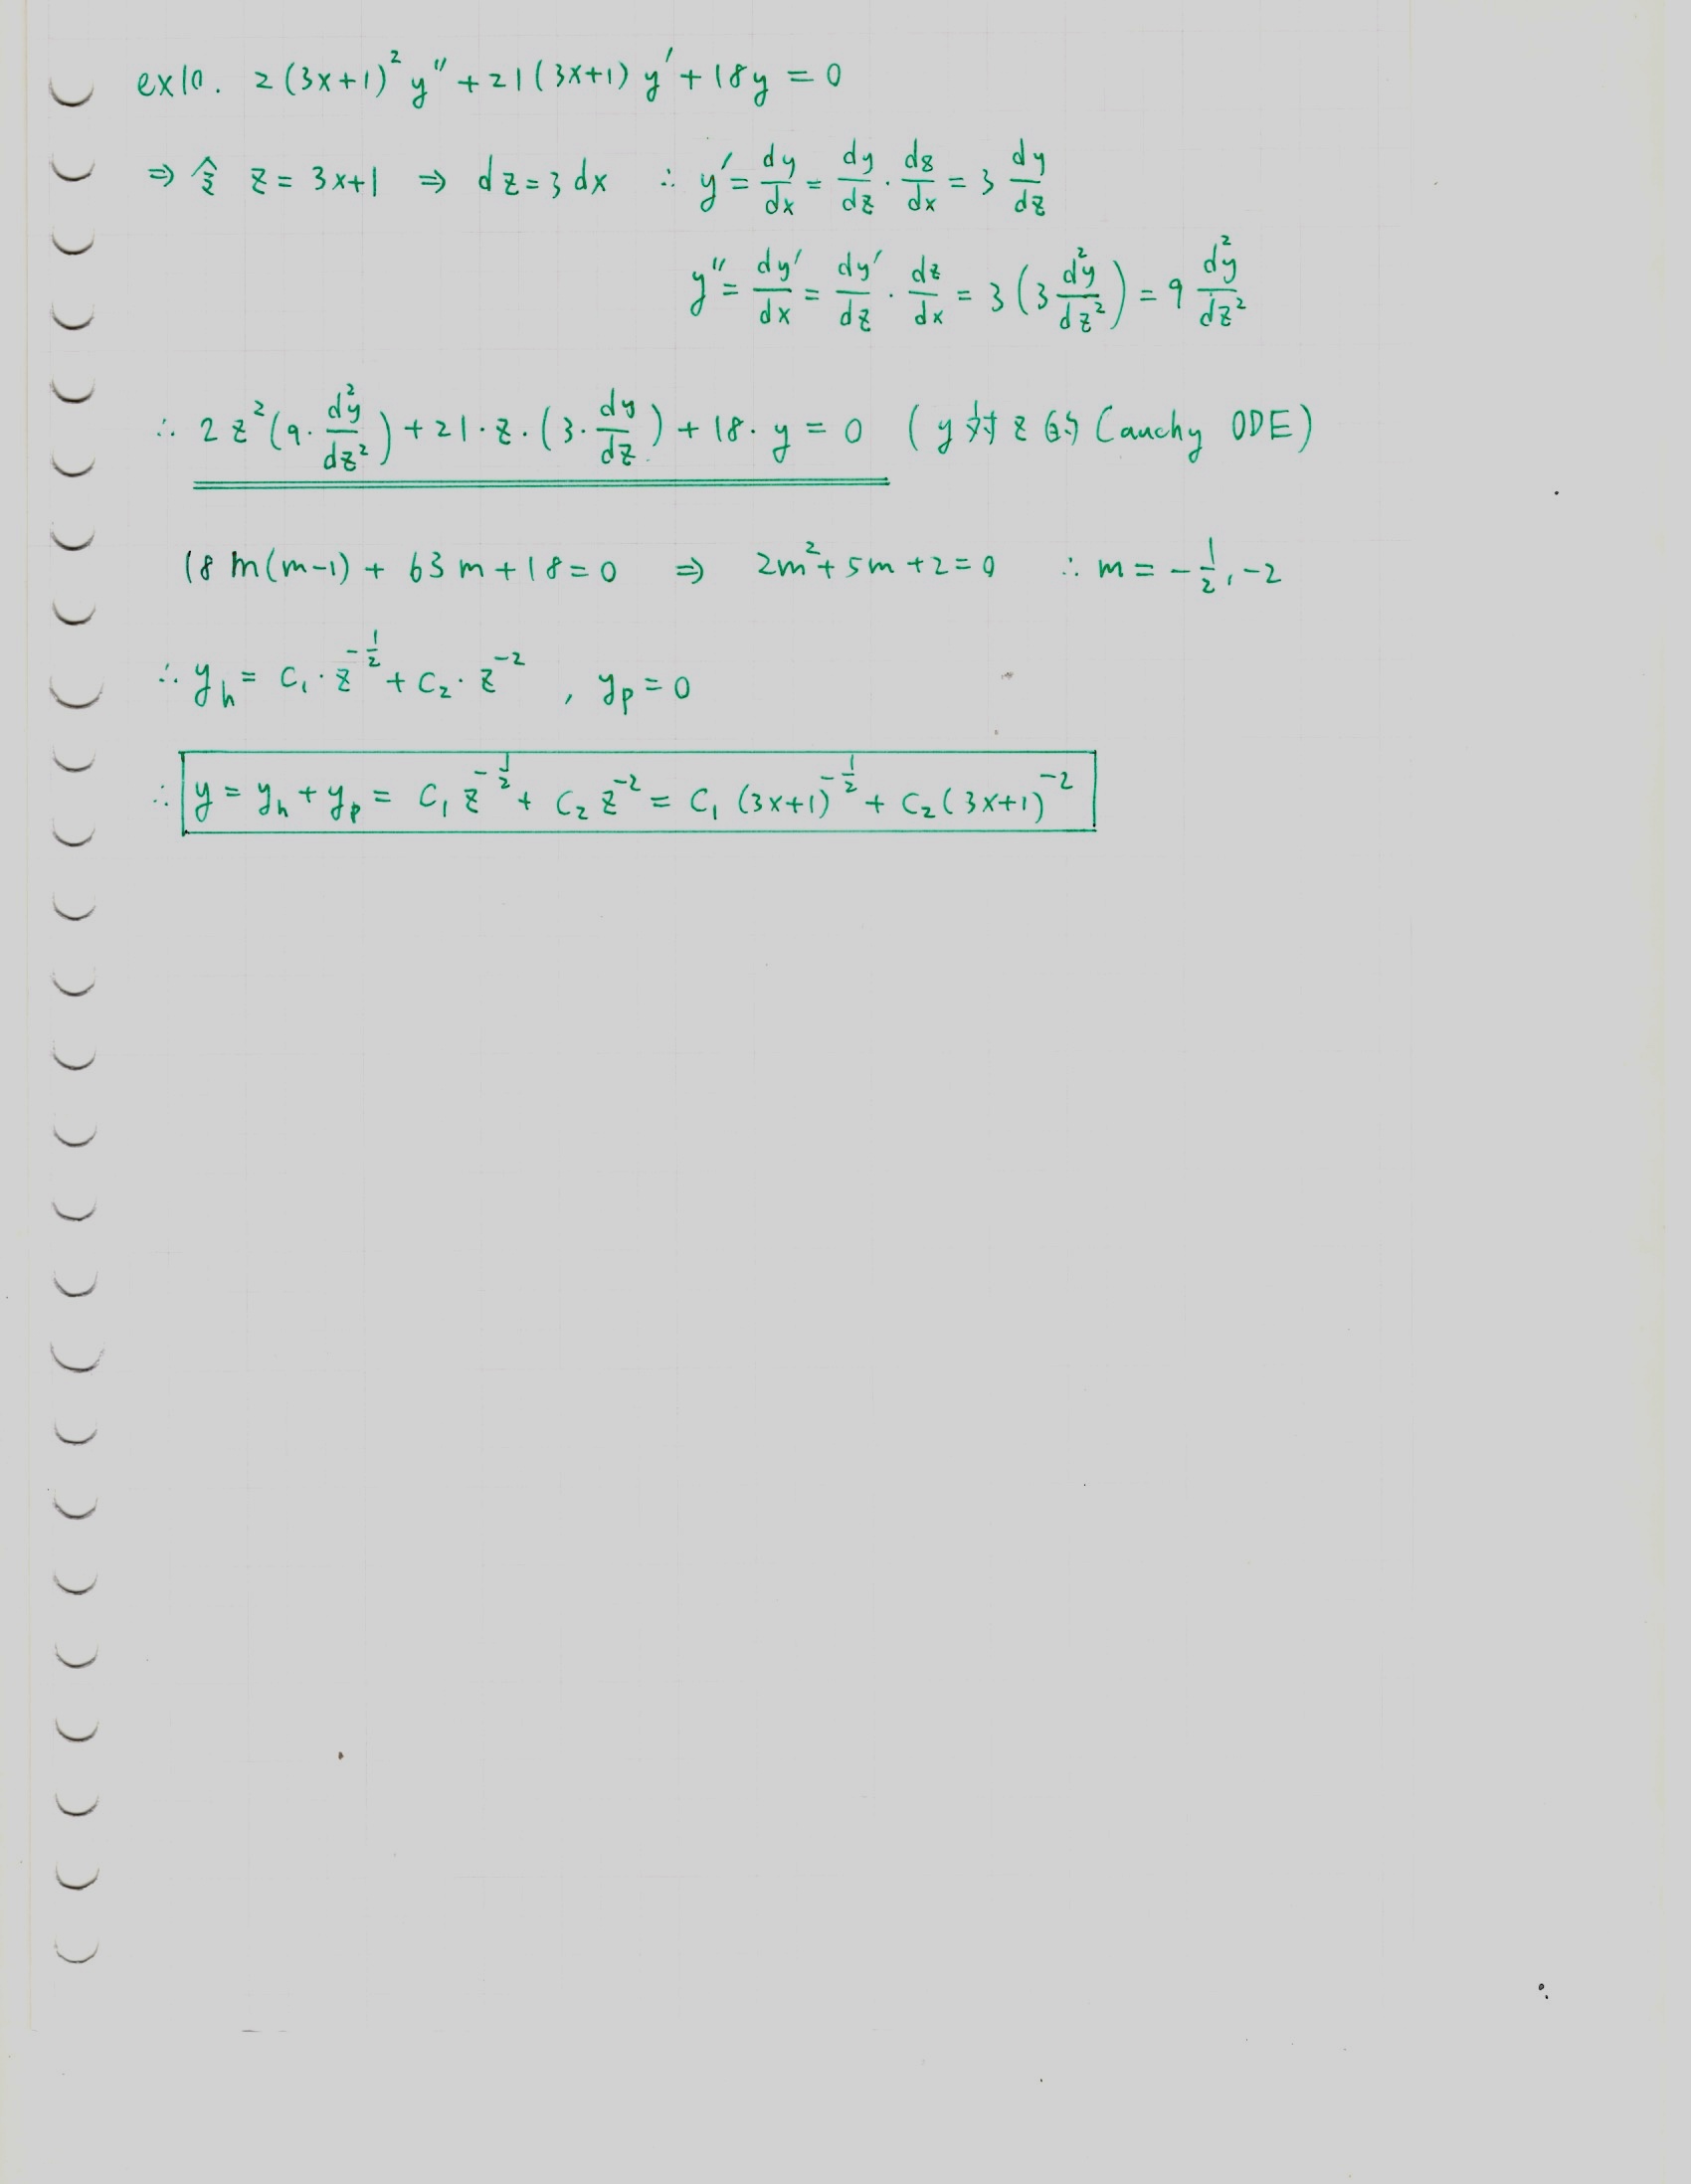 ex10. 2(3x+1)² y″ + 21(3x+1) y′ + 18y = 0
⇒ 令 z = 3x+1 ⇒ dz = 3dx ∴ y′ = dy/dx = dy/dz · dz/dx = 3 dy/dz
y″ = dy′/dx = dy′/dz · dz/dx = 3(3 d²y/dz²) = 9 d²y/dz²
∴ 2z²(9· d²y/dz²) + 21·z·(3· dy/dz) + 18·y = 0 (y 對 z 的 Cauchy ODE)
18m(m-1) + 63m + 18 = 0 ⇒ 2m² + 5m + 2 = 0 ∴ m = -1/2, -2
∴ y_h = C₁·z^(-1/2) + C₂·z^(-2) , y_p = 0
∴ y = y_h + y_p = C₁ z^(-1/2) + C₂ z^(-2) = C₁ (3x+1)^(-1/2) + C₂ (3x+1)^(-2)